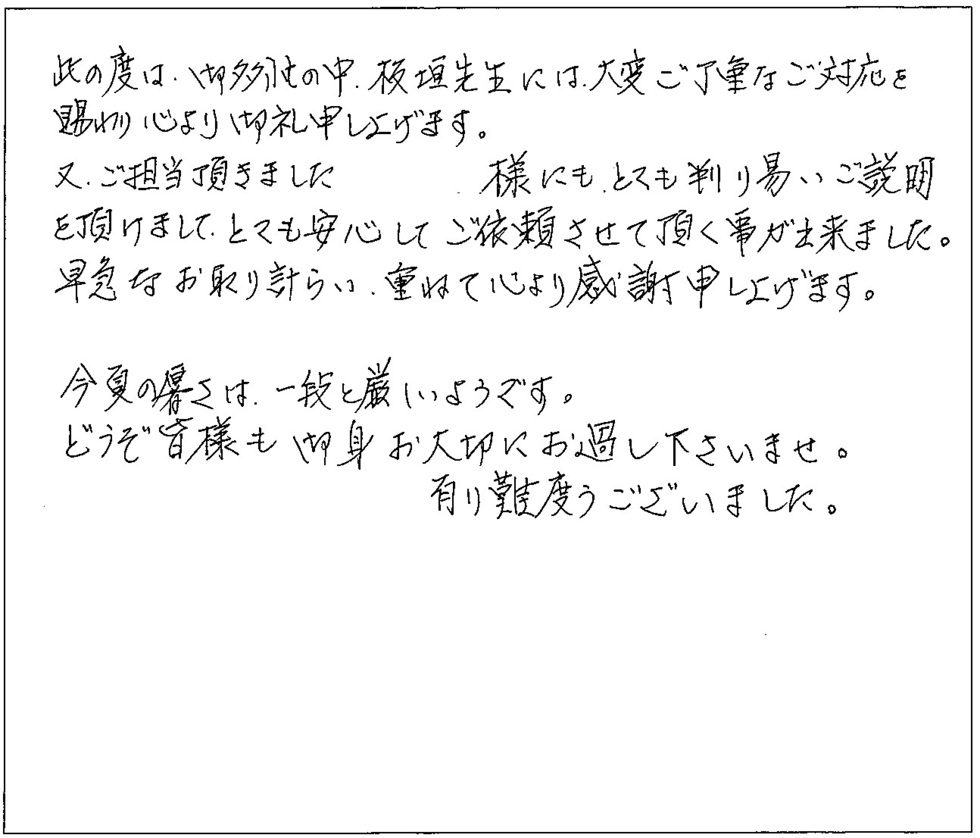 此の度は、御多忙の中、板垣先生には、大変ご丁重なご対応を
賜わり心より御礼申し上げます。
又、ご担当頂きました 様にも、とても判り易いご説明
を頂けまして、とても安心してご依頼させて頂く事が出来ました。
早急なお取り計らい、重ねて心より感謝申し上げます。
今夏の暑さは、一段と厳しいようです。
どうぞ皆様も御身お大切にお過し下さいませ。
有り難度うございました。